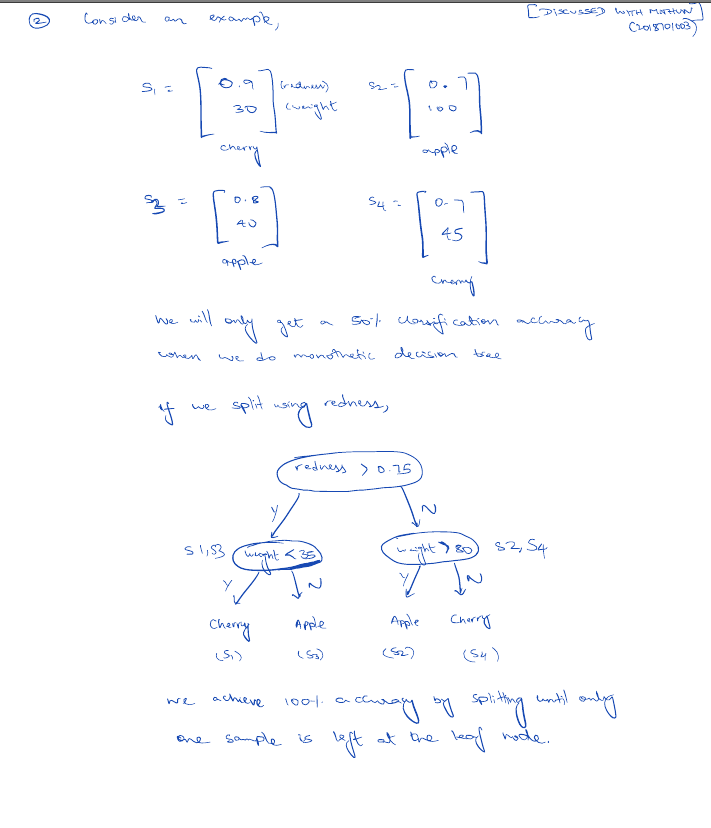 ② Consider an example, [DISCUSSED WITH MITHUN]
(2018701003)
S1 = [0.9 (redness) S2 = [0.7
30] (weight 100]
cherry apple
S3 = [0.8 S4 = [0.7
40] 45]
apple cherry
We will only get a 50% classification accuracy
when we do monothetic decision tree
if we split using redness,
redness > 0.75
Y N
S1,S3 weight < 35 weight > 80 S2,S4
Y N Y N
Cherry Apple Apple Cherry
(S1) (S3) (S2) (S4)
we achieve 100% accuracy by splitting until only
one sample is left at the leaf node.